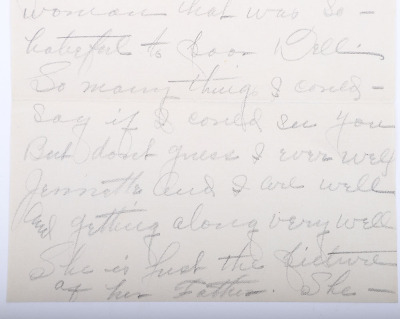 woman that was so -
hateful to poor Nell.
So many things I could -
say if I could see you
But don't guess I ever will
Jennette and I are well
And getting along very well
She is just the picture
of her Father. She -